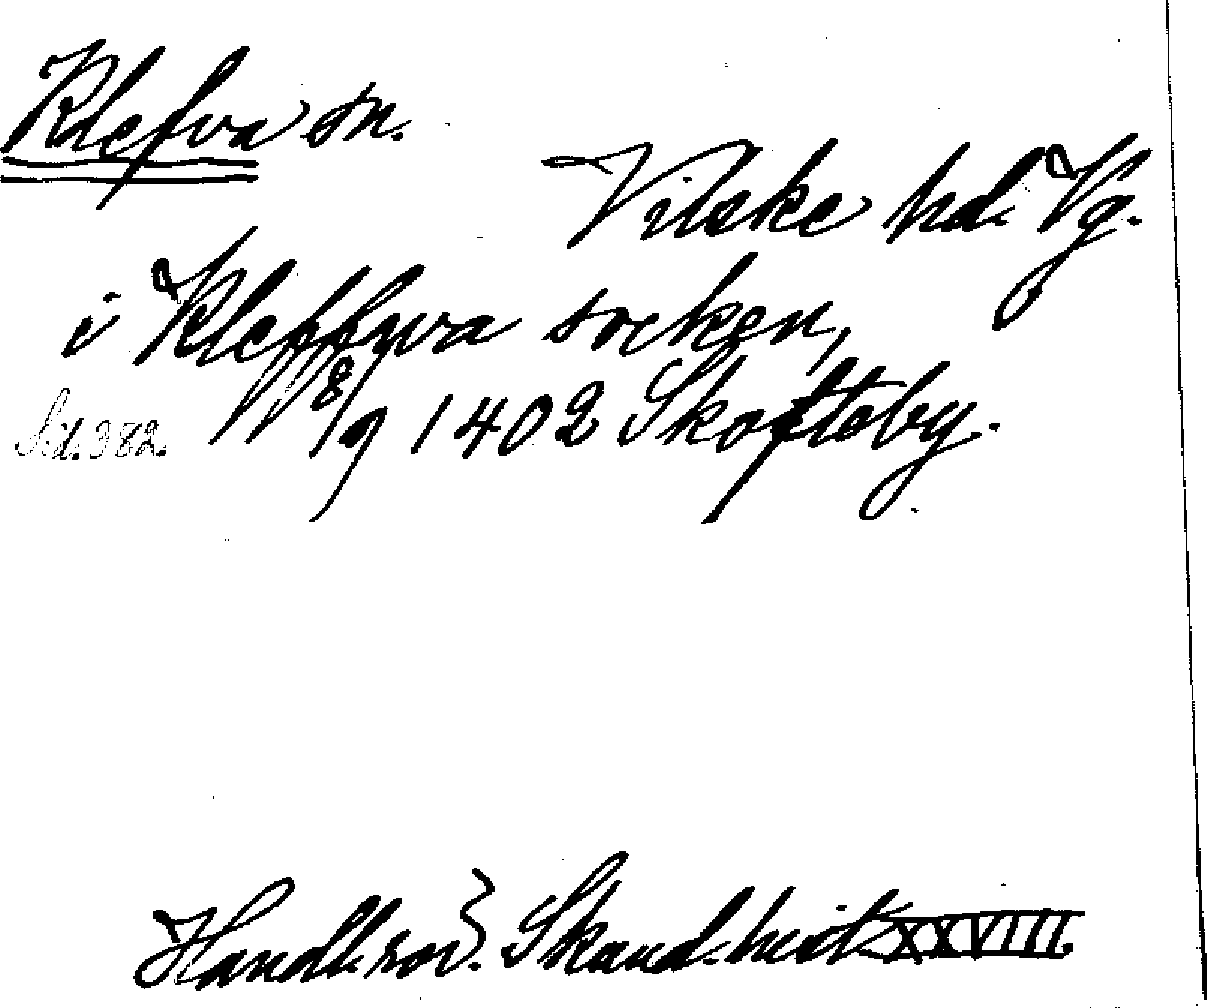 Klefva sn.
Vilske hd. Vg.
i Kleffwa socken,
Sd. 382. 8/9 1402 Skofteby.
Handl. rör. Skand. hist. XXVIII.